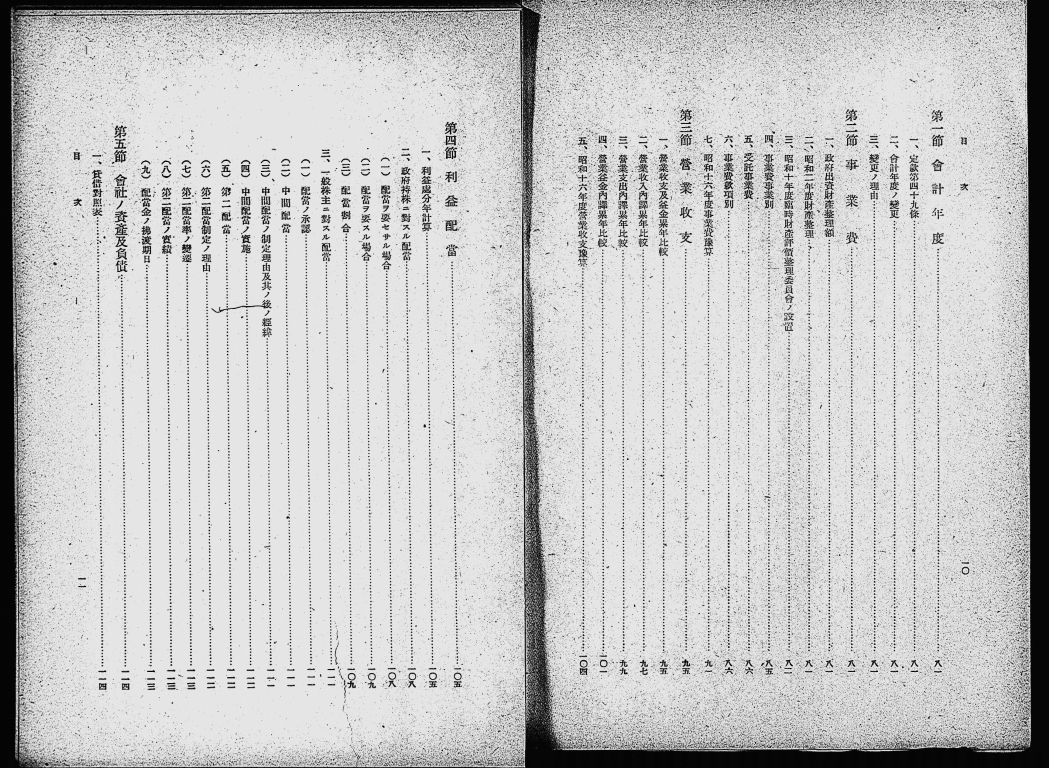 目次
一〇
第一節 會計年度……八一
一、定款第四十九條……八一
二、會計年度ノ變更……八一
三、變更ノ理由……八一
第二節 事業費……八一
一、政府出資財產整理額……八一
二、昭和二年度財產整理……八一
三、昭和十年度臨時財產評價整理委員會ノ設置……八二
四、事業費事業別……八五
五、受託事業費……八六
六、事業費款項別……八六
七、昭和十六年度事業費豫算……九一
第三節 營業收支……九五
一、營業收支及益金累年比較……九五
二、營業收入內譯累年比較……九七
三、營業支出內譯累年比較……九九
四、營業益金內譯累年比較……一〇一
五、昭和十六年度營業收支豫算……一〇四
第四節 利益配當……一〇五
一、利益處分年計算……一〇五
二、政府持株ニ對スル配當……一〇八
(一) 配當ヲ要セサル場合……一〇八
(二) 配當ヲ要スル場合……一〇九
(三) 配當割合……一〇九
三、一般株主ニ對スル配當……一一一
(一) 配當ノ承認……一一一
(二) 中間配當……一一一
(三) 中間配當ノ制定理由及其ノ後ノ經緯……一一一
(四) 中間配當ノ實施……一一二
(五) 第二配當……一一二
(六) 第二配當制定ノ理由……一一二
(七) 第二配當率ノ變遷……一一三
(八) 第二配當ノ實績……一一三
(九) 配當金ノ拂渡期日……一一三
第五節 會社ノ資產及負債……一一四
一、貸借對照表……一一四
目次
一一